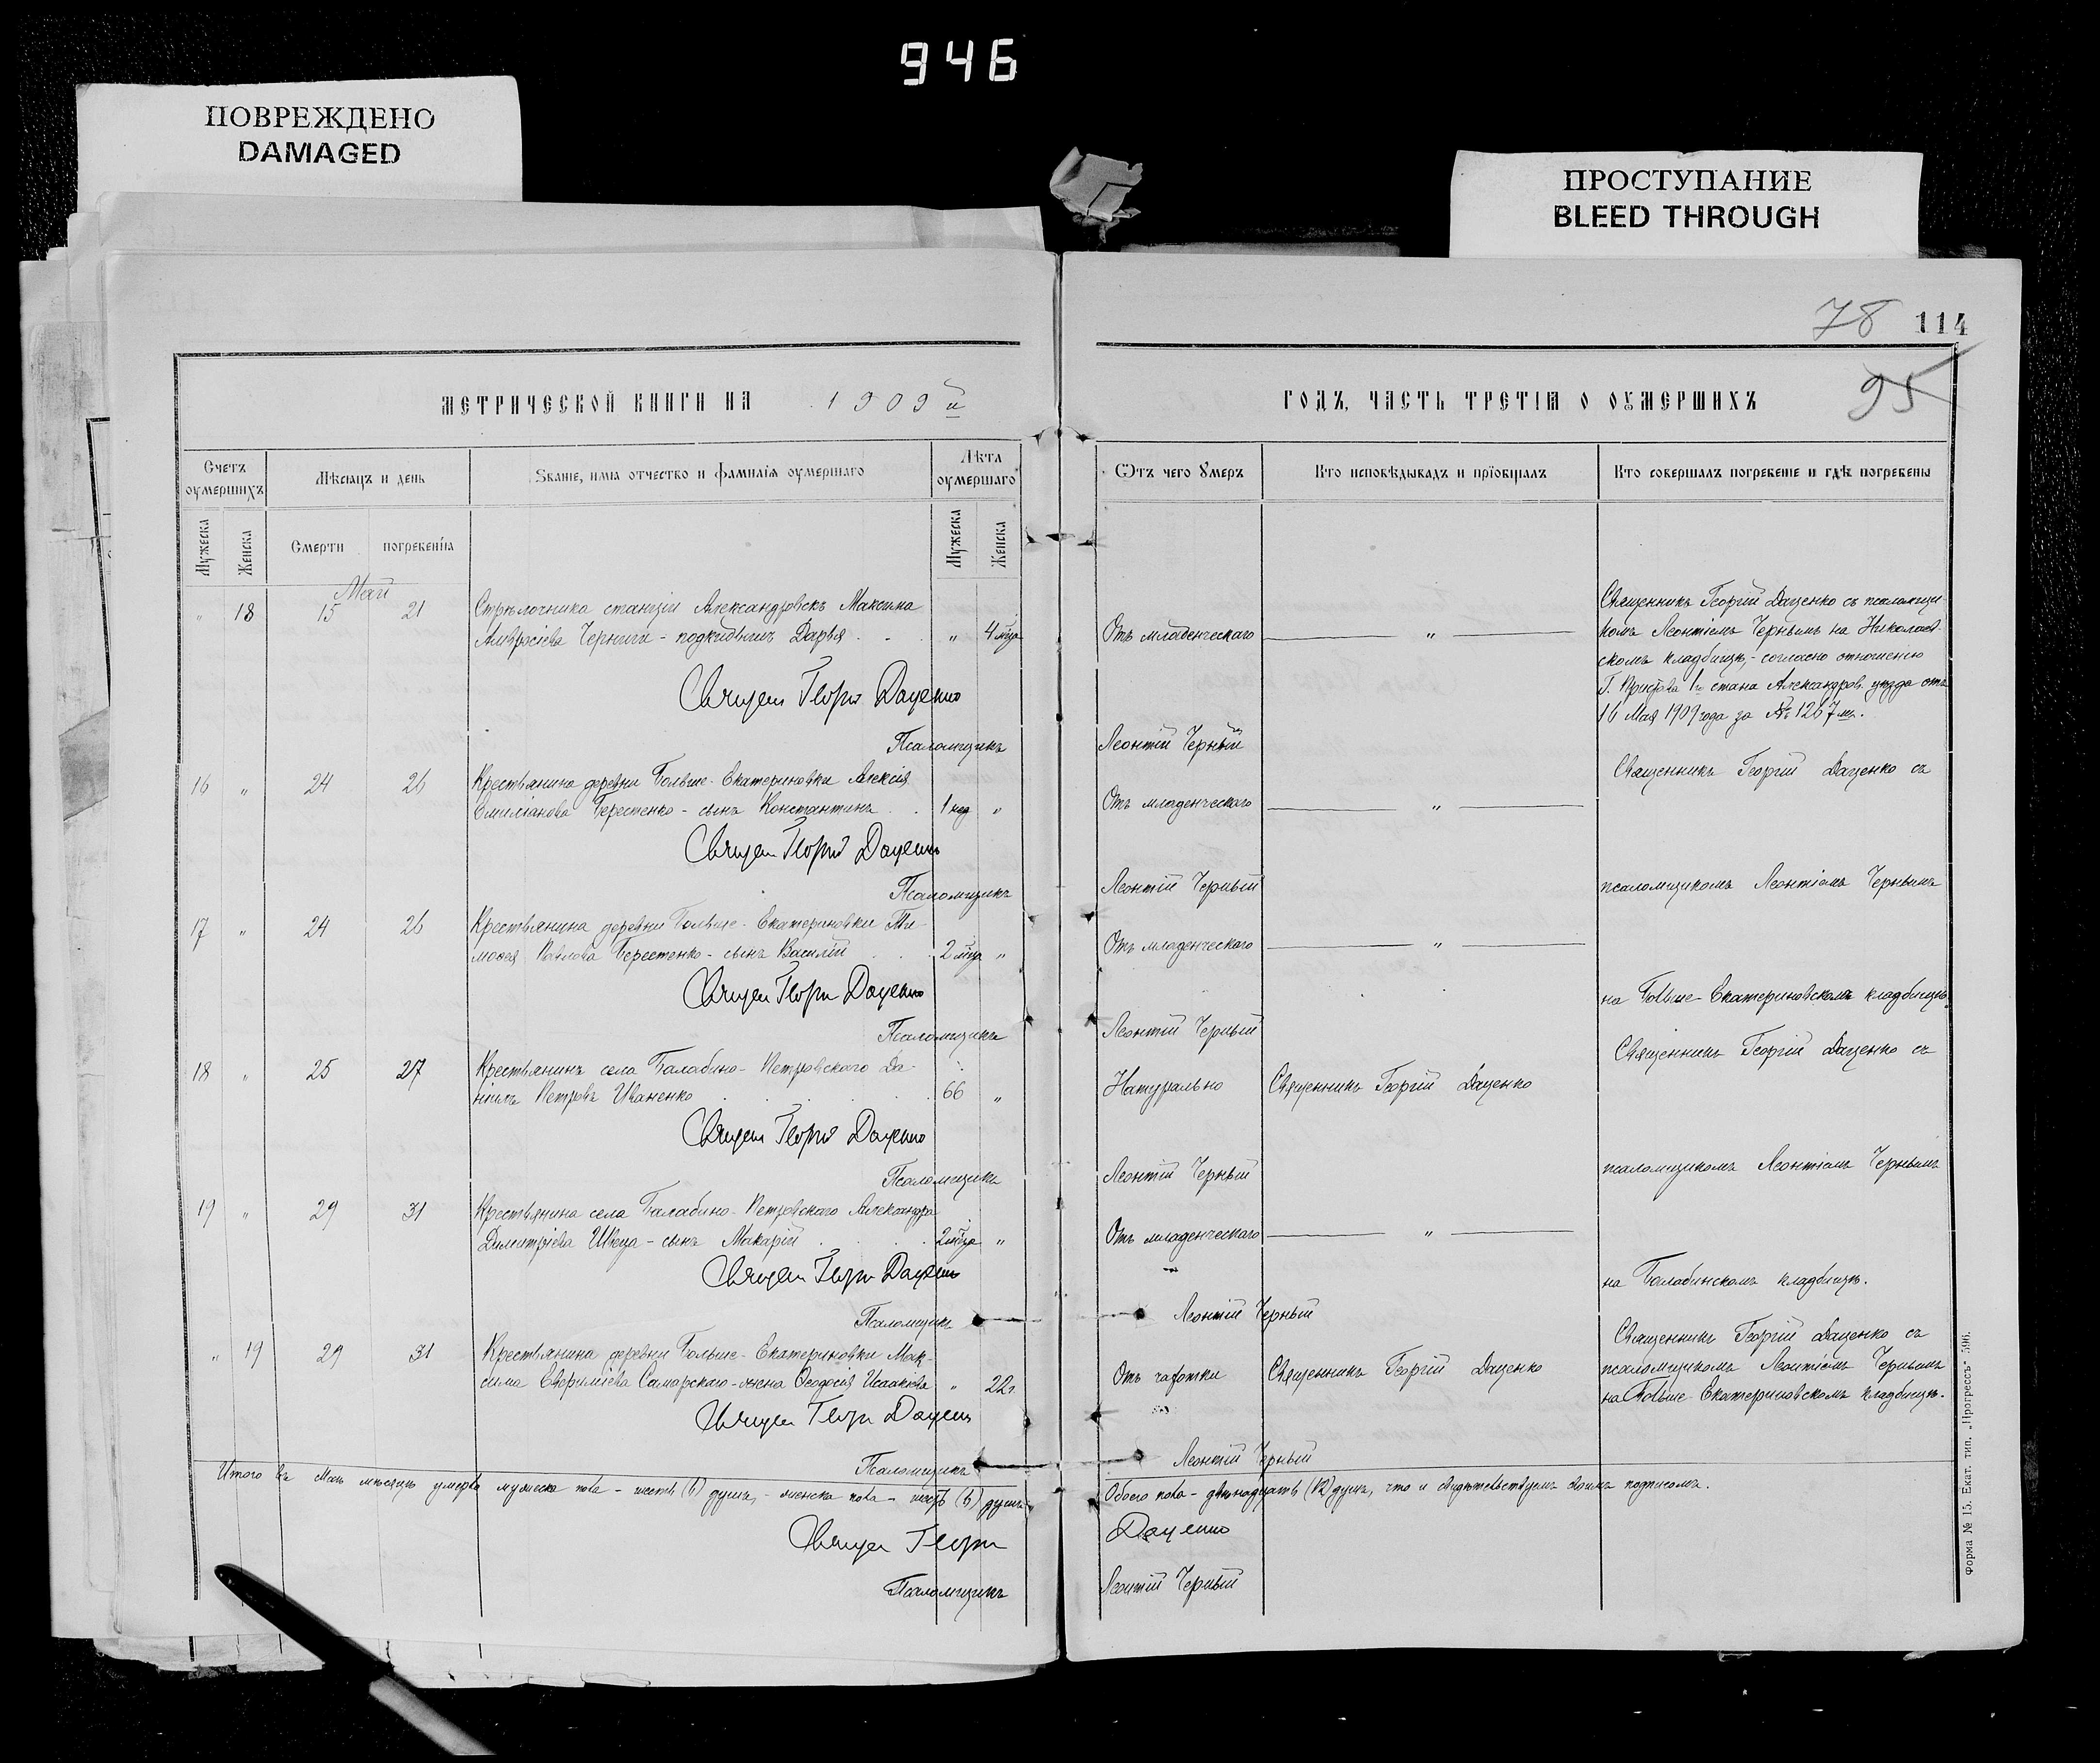 946
ПОВРЕЖДЕНО
DAMAGED
ПРОСТУПАНИЕ
BLEED THROUGH
78 114
95
МЕТРИЧЕСКОЙ КНИГИ НА 1909й
ГОДЪ, ЧАСТЬ ТРЕТІЯ О ОУМЕРШИХЪ
Счетъ оумершихъ
Мѣсяцъ и день
Званіе, имя отчество и фамилія оумершаго
Лѣта оумершаго
Ѿтъ чего Умеръ
Кто исповѣдывадъ и пріобщалъ
Кто совершалъ погребеніе и гдѣ погребены
Мужеска
Женска
Смерти
погребенія
Мужеска
Женска
Май
" 18 15 21 Стрѣлочника станціи Александровскъ Максима
Амвросіева Черниги - подкидышъ Дарья . . " 4 мѣца
Отъ младенческаго "
Священникъ Георгій Даценко съ псаломщи-
комъ Леонтіемъ Чернымъ на Николаев-
скомъ кладбищѣ, - согласно отношенію
Г. Пристава 1го стана Александров. уѣзда отъ
16 Мая 1909 года за № 1267мъ.
Священ Георгій Даценко
Псаломщикъ Леонтій Черный
16 " 24 26 Крестьянина деревни Больше-Екатериновки Алексія
Емиліанова Берестенко - сынъ Константинъ . . 1 нед "
Отъ младенческаго "
Священникъ Георгій Даценко съ
Священ Георгій Даценко
Псаломщикъ Леонтій Черный
псаломщикомъ Леонтіемъ Чернымъ
17 " 24 26 Крестьянина деревни Больше-Екатериновки Ти-
моѳея Павлова Берестенко - сынъ Василій . . . 2 мѣца "
Отъ младенческаго "
Священ Георгій Даценко
на Больше-Екатериновскомъ кладбищѣ.
Псаломщикъ Леонтій Черный
18 " 25 27 Крестьянинъ села Балабино-Петровскаго Да-
ніилъ Петровъ Иваненко . . . . . 66 "
Натурально Священникъ Георгій Даценко
Священникъ Георгій Даценко съ
Священ Георгій Даценко
Псаломщикъ Леонтій Черный
псаломщикомъ Леонтіемъ Чернымъ
19 " 29 31 Крестьянина села Балабино-Петровскаго Александра
Димитріева Швеца - сынъ Макарій . . . . 2 мѣца "
Отъ младенческаго "
Священ Георгій Даценко
на Балабинскомъ кладбищѣ.
Псаломщикъ Леонтій Черный
" 19 29 31 Крестьянина деревни Больше-Екатериновки Мак-
сима Евфиміева Самарскаго - жена Ѳеодосія Исаакіева " 22 г.
Отъ чахотки Священникъ Георгій Даценко
Священникъ Георгій Даценко съ
псаломщикомъ Леонтіемъ Чернымъ
на Больше-Екатериновскомъ кладбищѣ.
Священ Георгій Даценко
Псаломщикъ Леонтій Черный
Итого въ Маѣ мѣсяцѣ умерло мужеска пола - шесть (6) душъ, - женска пола - шесть (6) душъ
Обоего пола - двѣнадцать (12) душъ, что и свидѣтельствуемъ своимъ подписомъ.
Священ Георгій Даценко
Псаломщикъ Леонтій Черный
Форма № 15. Екат. тип. „Прогрессъ" 596.